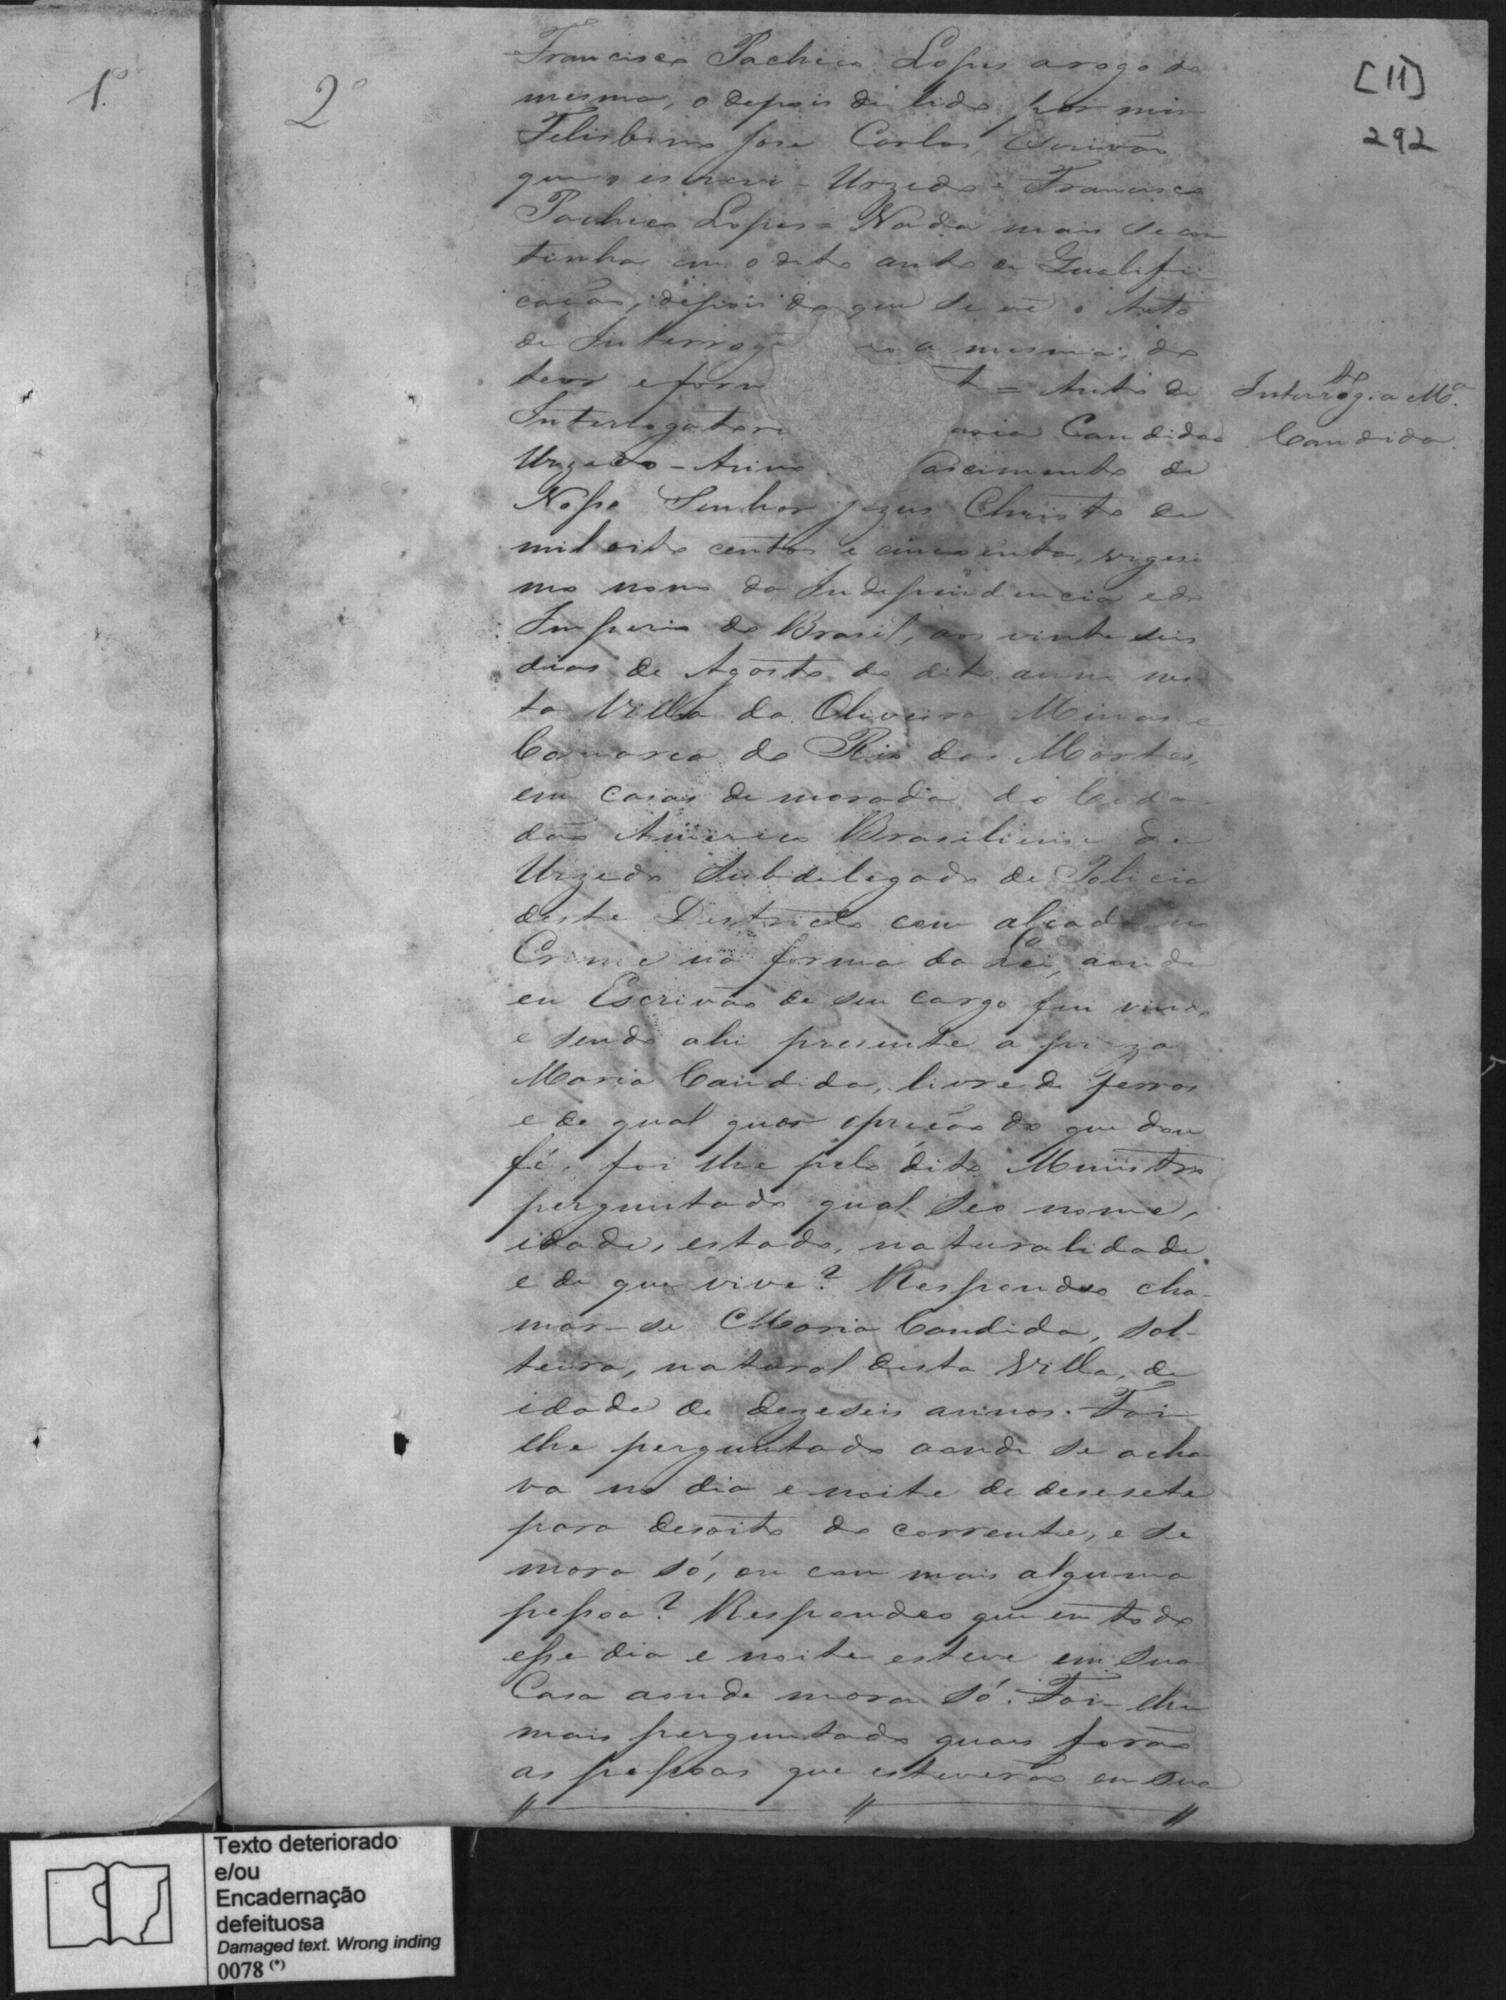 1º
2º
[11]
292
Francisco Pacheco Lopes arogo da
mesma, o depois de lido por mim
Felisbino Jose Carlos Escrivão
que o escrevi - Urzedo = Francisco
Pacheco Lopes = Nada mais se con
tinha em o dito auto de Qualifi
cação, depois do que se vê o Auto
de Interrog a mesma, do
teor eform = Auto de
Interrogatori aria Candida
Urzedo - Anno ascimento de
Nosso Senhor Jezus Christo de
mil oito centos e cincoenta, vigesi
mo nono da Independencia edo
Imperio do Brasil, aos vinte seis
dias de Agosto do dito anno nes
ta Villa da Oliveira Minas e
Comarca do Rio das Mortes,
em casas de morada do Cida
dão Americo Brasiliense de
Urzedo Subdelegado de Policia
deste Destricto com alçada no
Crime na forma da Lei, aonde
eu Escrivão de seu cargo fui vindo
e sendo ahi presente a preza
Maria Candida, livre de ferros
e de qual quer opreção do que dou
fé, foi lhe pelo dito Menistro
perguntado qual seo nome,
idade, estado, naturalidade
e de que vive? Respondeo cha-
mar-se Maria Candida, sol-
teira, natural desta Villa, de
idade de dezeseis annos. Foi
lhe perguntado aonde se acha
va no dia e noite de desesete
para desoito do corrente, e se
mora só, ou com mais alguma
pessoa? Respondeo que em todo
esse dia e noite esteve em sua
Casa aonde mora só. Foi-lhe
mais perguntado quais forão
as pessoas que estiverão em sua
Interrog.to a M.a
Candida.
Texto deteriorado
e/ou
Encadernação
defeituosa
Damaged text. Wrong inding
0078 (*)